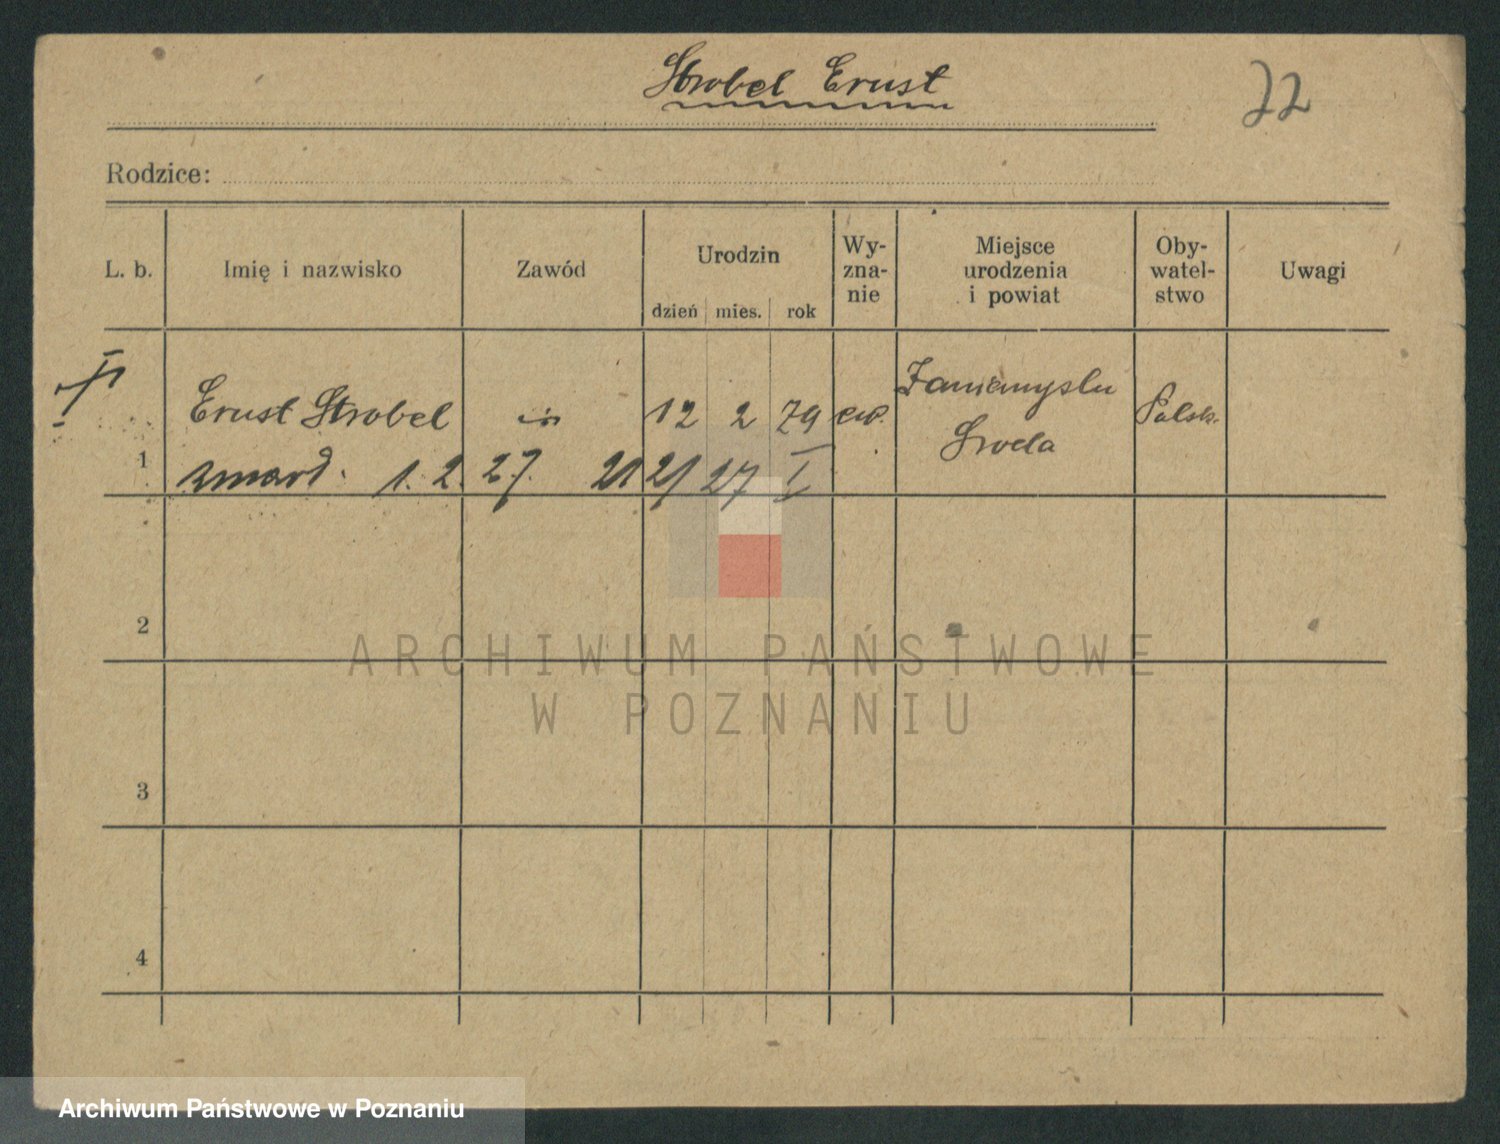 Strobel Ernst
22
Rodzice:
L. b. Imię i nazwisko Zawód Urodzin dzień mies. rok Wy-zna-nie Miejsce urodzenia i powiat Oby-watel-stwo Uwagi
1 Ernst Strobel 12 2 79 ew. Zaniemyslu Polsk.
Sroda
zmarł. 1. 2. 27. 21 21/27 I
2
3
4
ARCHIWUM PAŃSTWOWE
W POZNANIU
Archiwum Państwowe w Poznaniu